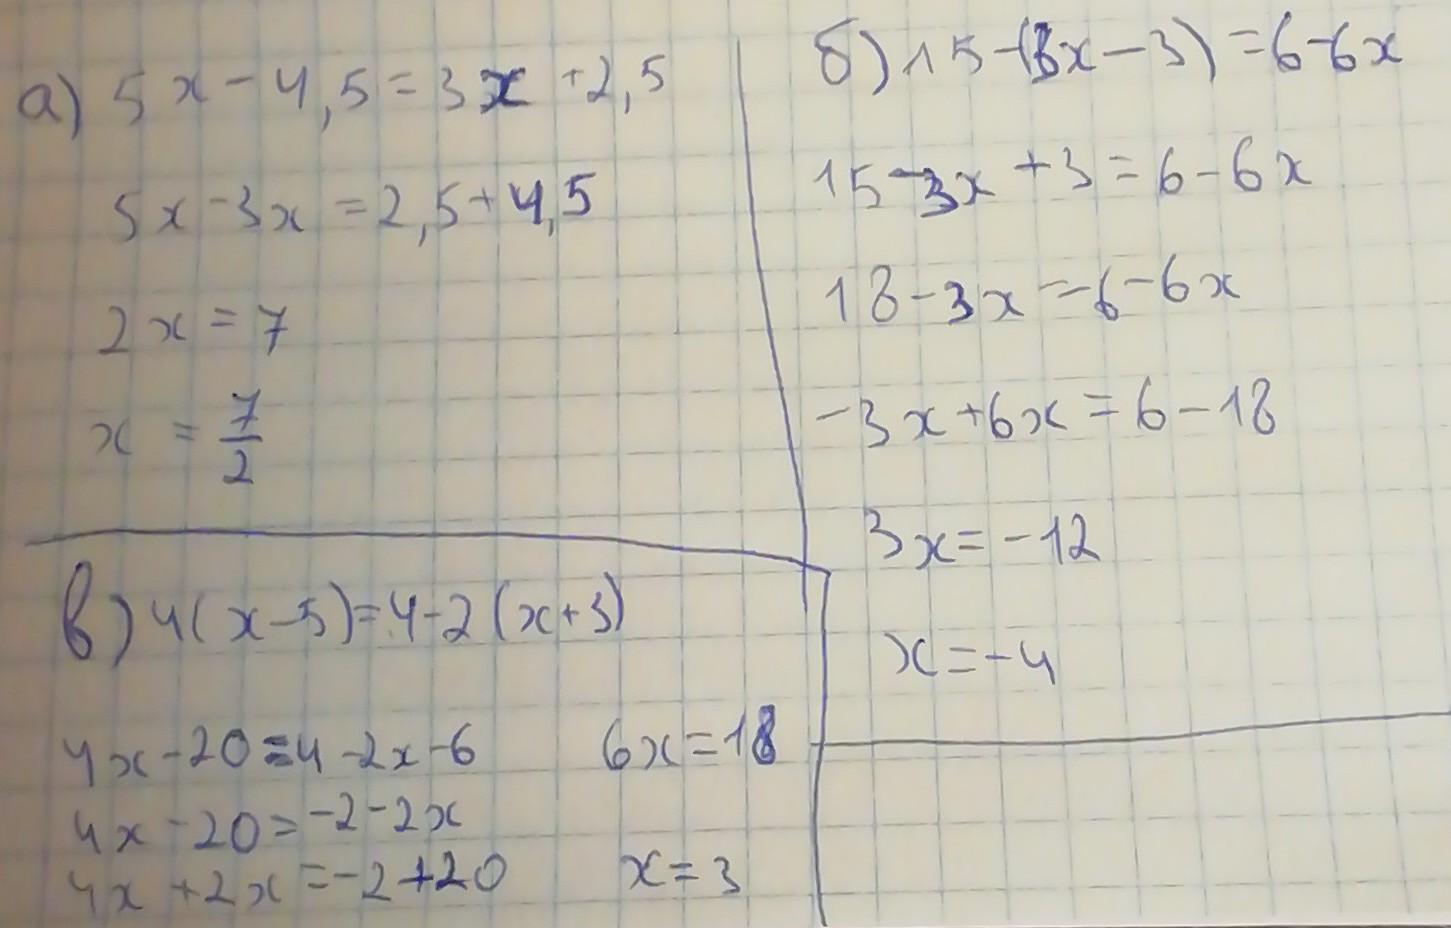 а) 5x - 4,5 = 3x + 2,5
5x - 3x = 2,5 + 4,5
2x = 7
x = 7/2
б) 15 - (3x - 3) = 6 - 6x
15 - 3x + 3 = 6 - 6x
18 - 3x = 6 - 6x
-3x + 6x = 6 - 18
3x = -12
x = -4
в) 4(x - 5) = 4 - 2(x + 3)
4x - 20 = 4 - 2x - 6
4x - 20 = -2 - 2x
4x + 2x = -2 + 20
6x = 18
x = 3